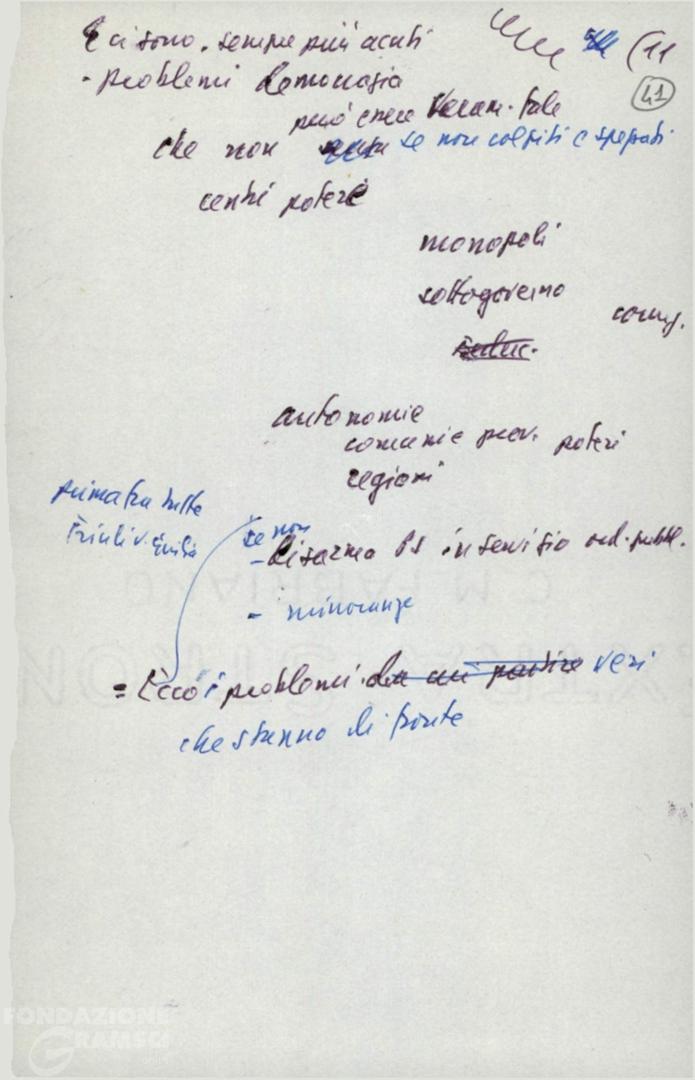 E ci sono. sempre più acuti
(11
- problemi democrazia
41
può essere veram. tale
che non se non colpiti e spezzati
centri potere
monopoli
sottogoverno
autonomie
comunie prov. poteri
regioni
prima fra tutte
Friuli v. Giulia
se non
- disarmo PS in servizio ord. pubbl.
- minoranze
= Ecco i problemi da cui partire veri
che stanno di fronte
FONDAZIONE
GRAMSCI